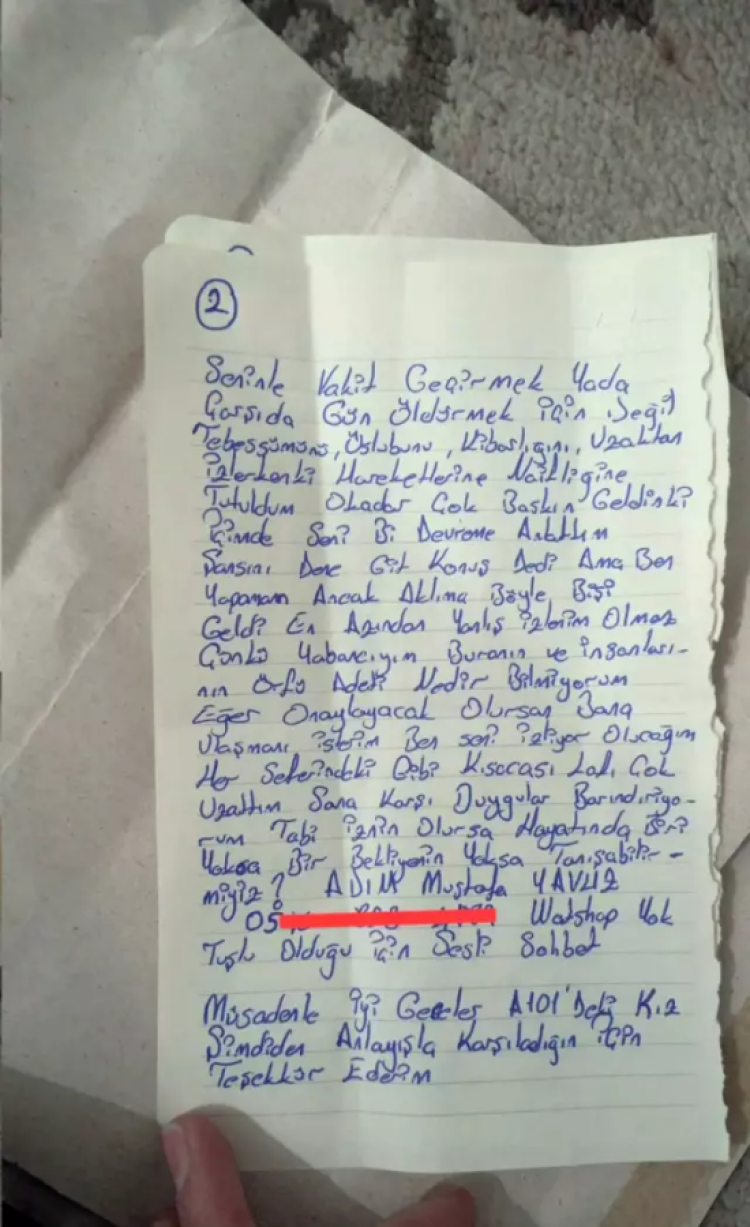 2
Seninle Vakit Geçirmek Yada
Çarşıda Gün Öldürmek için Değil
Tebessümünü, Üslubunu, Kibarlığını, Uzaktan
izlerkenki Hareketlerine Naifliğine
Tutuldum Okadar Çok Baskın Geldinki
içimde Seni Bi Devrome Anlattım
Şansını Dene Git Konuş Dedi Ama Ben
Yapamam Ancak Aklıma Böyle Bişi
Geldi En Azından Yanlış izlenim Olmaz
Çünkü Yabancıyım Buranın ve insanları-
nın Örfü Adeti Nedir Bilmiyorum
Eğer Onaylayacak Olursan Bana
Ulaşmanı isterim Ben seni izliyor Olucağım
Her Seferindeki Gibi Kısacası Lafı Çok
Uzattım Sana Karşı Duygular Barındırıyo-
rum Tabi iznin Olursa Hayatında Biri
Yoksa Bir Bekliyenin Yoksa Tanışabilir-
miyiz? ADIM Mustafa YAVUZ
05 Watshap Yok
Tuşlu Olduğu için Sesli Sohbet
Müsadenle iyi Geceler A101'Deki Kız
Şimdiden Anlayışla Karşıladığın için
Teşekkür Ederim